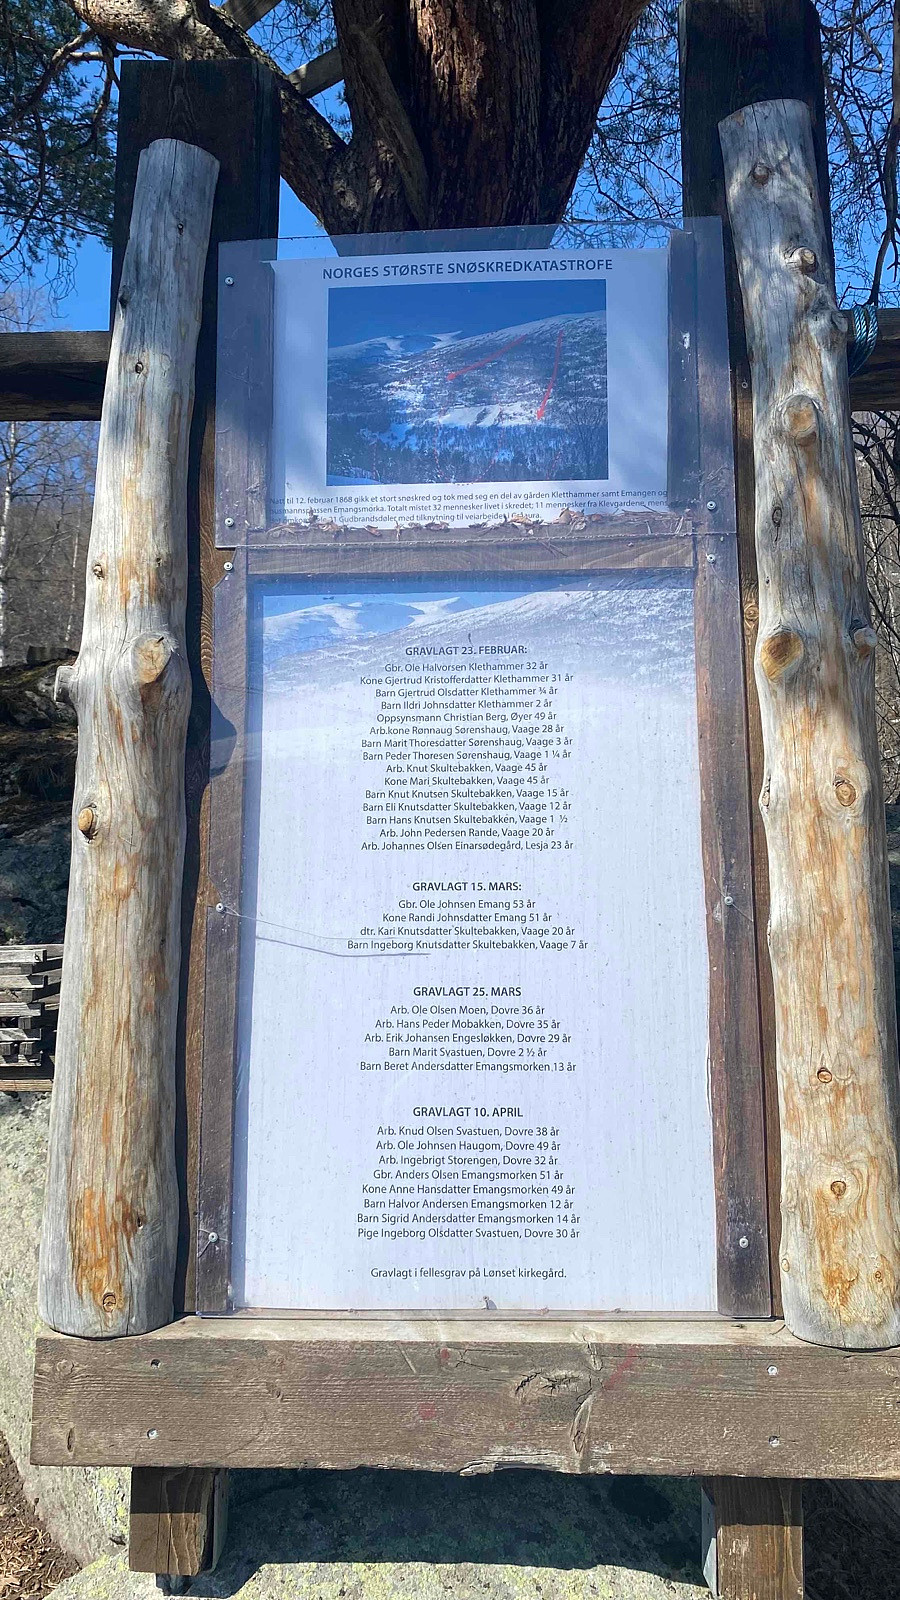 NORGES STØRSTE SNØSKREDKATASTROFE
Natt til 12. februar 1868 gikk et stort snøskred og tok med seg en del av gården Kletthammer samt Emangen og
husmannsplassen Emangsmorka. Totalt mistet 32 mennesker livet i skredet; 11 mennesker fra Klevgardene, mens
omkom 21 Gudbrandsdøler med tilknytning til veiarbeidet i Gråura.
GRAVLAGT 23. FEBRUAR:
Gbr. Ole Halvorsen Klethammer 32 år
Kone Gjertrud Kristofferdatter Klethammer 31 år
Barn Gjertrud Olsdatter Klethammer ¾ år
Barn Ildri Johnsdatter Klethammer 2 år
Oppsynsmann Christian Berg, Øyer 49 år
Arb.kone Rønnaug Sørenshaug, Vaage 28 år
Barn Marit Thoresdatter Sørenshaug, Vaage 3 år
Barn Peder Thoresen Sørenshaug, Vaage 1 ¼ år
Arb. Knut Skultebakken, Vaage 45 år
Kone Mari Skultebakken, Vaage 45 år
Barn Knut Knutsen Skultebakken, Vaage 15 år
Barn Eli Knutsdatter Skultebakken, Vaage 12 år
Barn Hans Knutsen Skultebakken, Vaage 1 ½
Arb. John Pedersen Rande, Vaage 20 år
Arb. Johannes Olsen Einarsødegård, Lesja 23 år
GRAVLAGT 15. MARS:
Gbr. Ole Johnsen Emang 53 år
Kone Randi Johnsdatter Emang 51 år
dtr. Kari Knutsdatter Skultebakken, Vaage 20 år
Barn Ingeborg Knutsdatter Skultebakken, Vaage 7 år
GRAVLAGT 25. MARS
Arb. Ole Olsen Moen, Dovre 36 år
Arb. Hans Peder Mobakken, Dovre 35 år
Arb. Erik Johansen Engesløkken, Dovre 29 år
Barn Marit Svastuen, Dovre 2 ½ år
Barn Beret Andersdatter Emangsmorken 13 år
GRAVLAGT 10. APRIL
Arb. Knud Olsen Svastuen, Dovre 38 år
Arb. Ole Johnsen Haugom, Dovre 49 år
Arb. Ingebrigt Storengen, Dovre 32 år
Gbr. Anders Olsen Emangsmorken 51 år
Kone Anne Hansdatter Emangsmorken 49 år
Barn Halvor Andersen Emangsmorken 12 år
Barn Sigrid Andersdatter Emangsmorken 14 år
Pige Ingeborg Olsdatter Svastuen, Dovre 30 år
Gravlagt i fellesgrav på Lønset kirkegård.